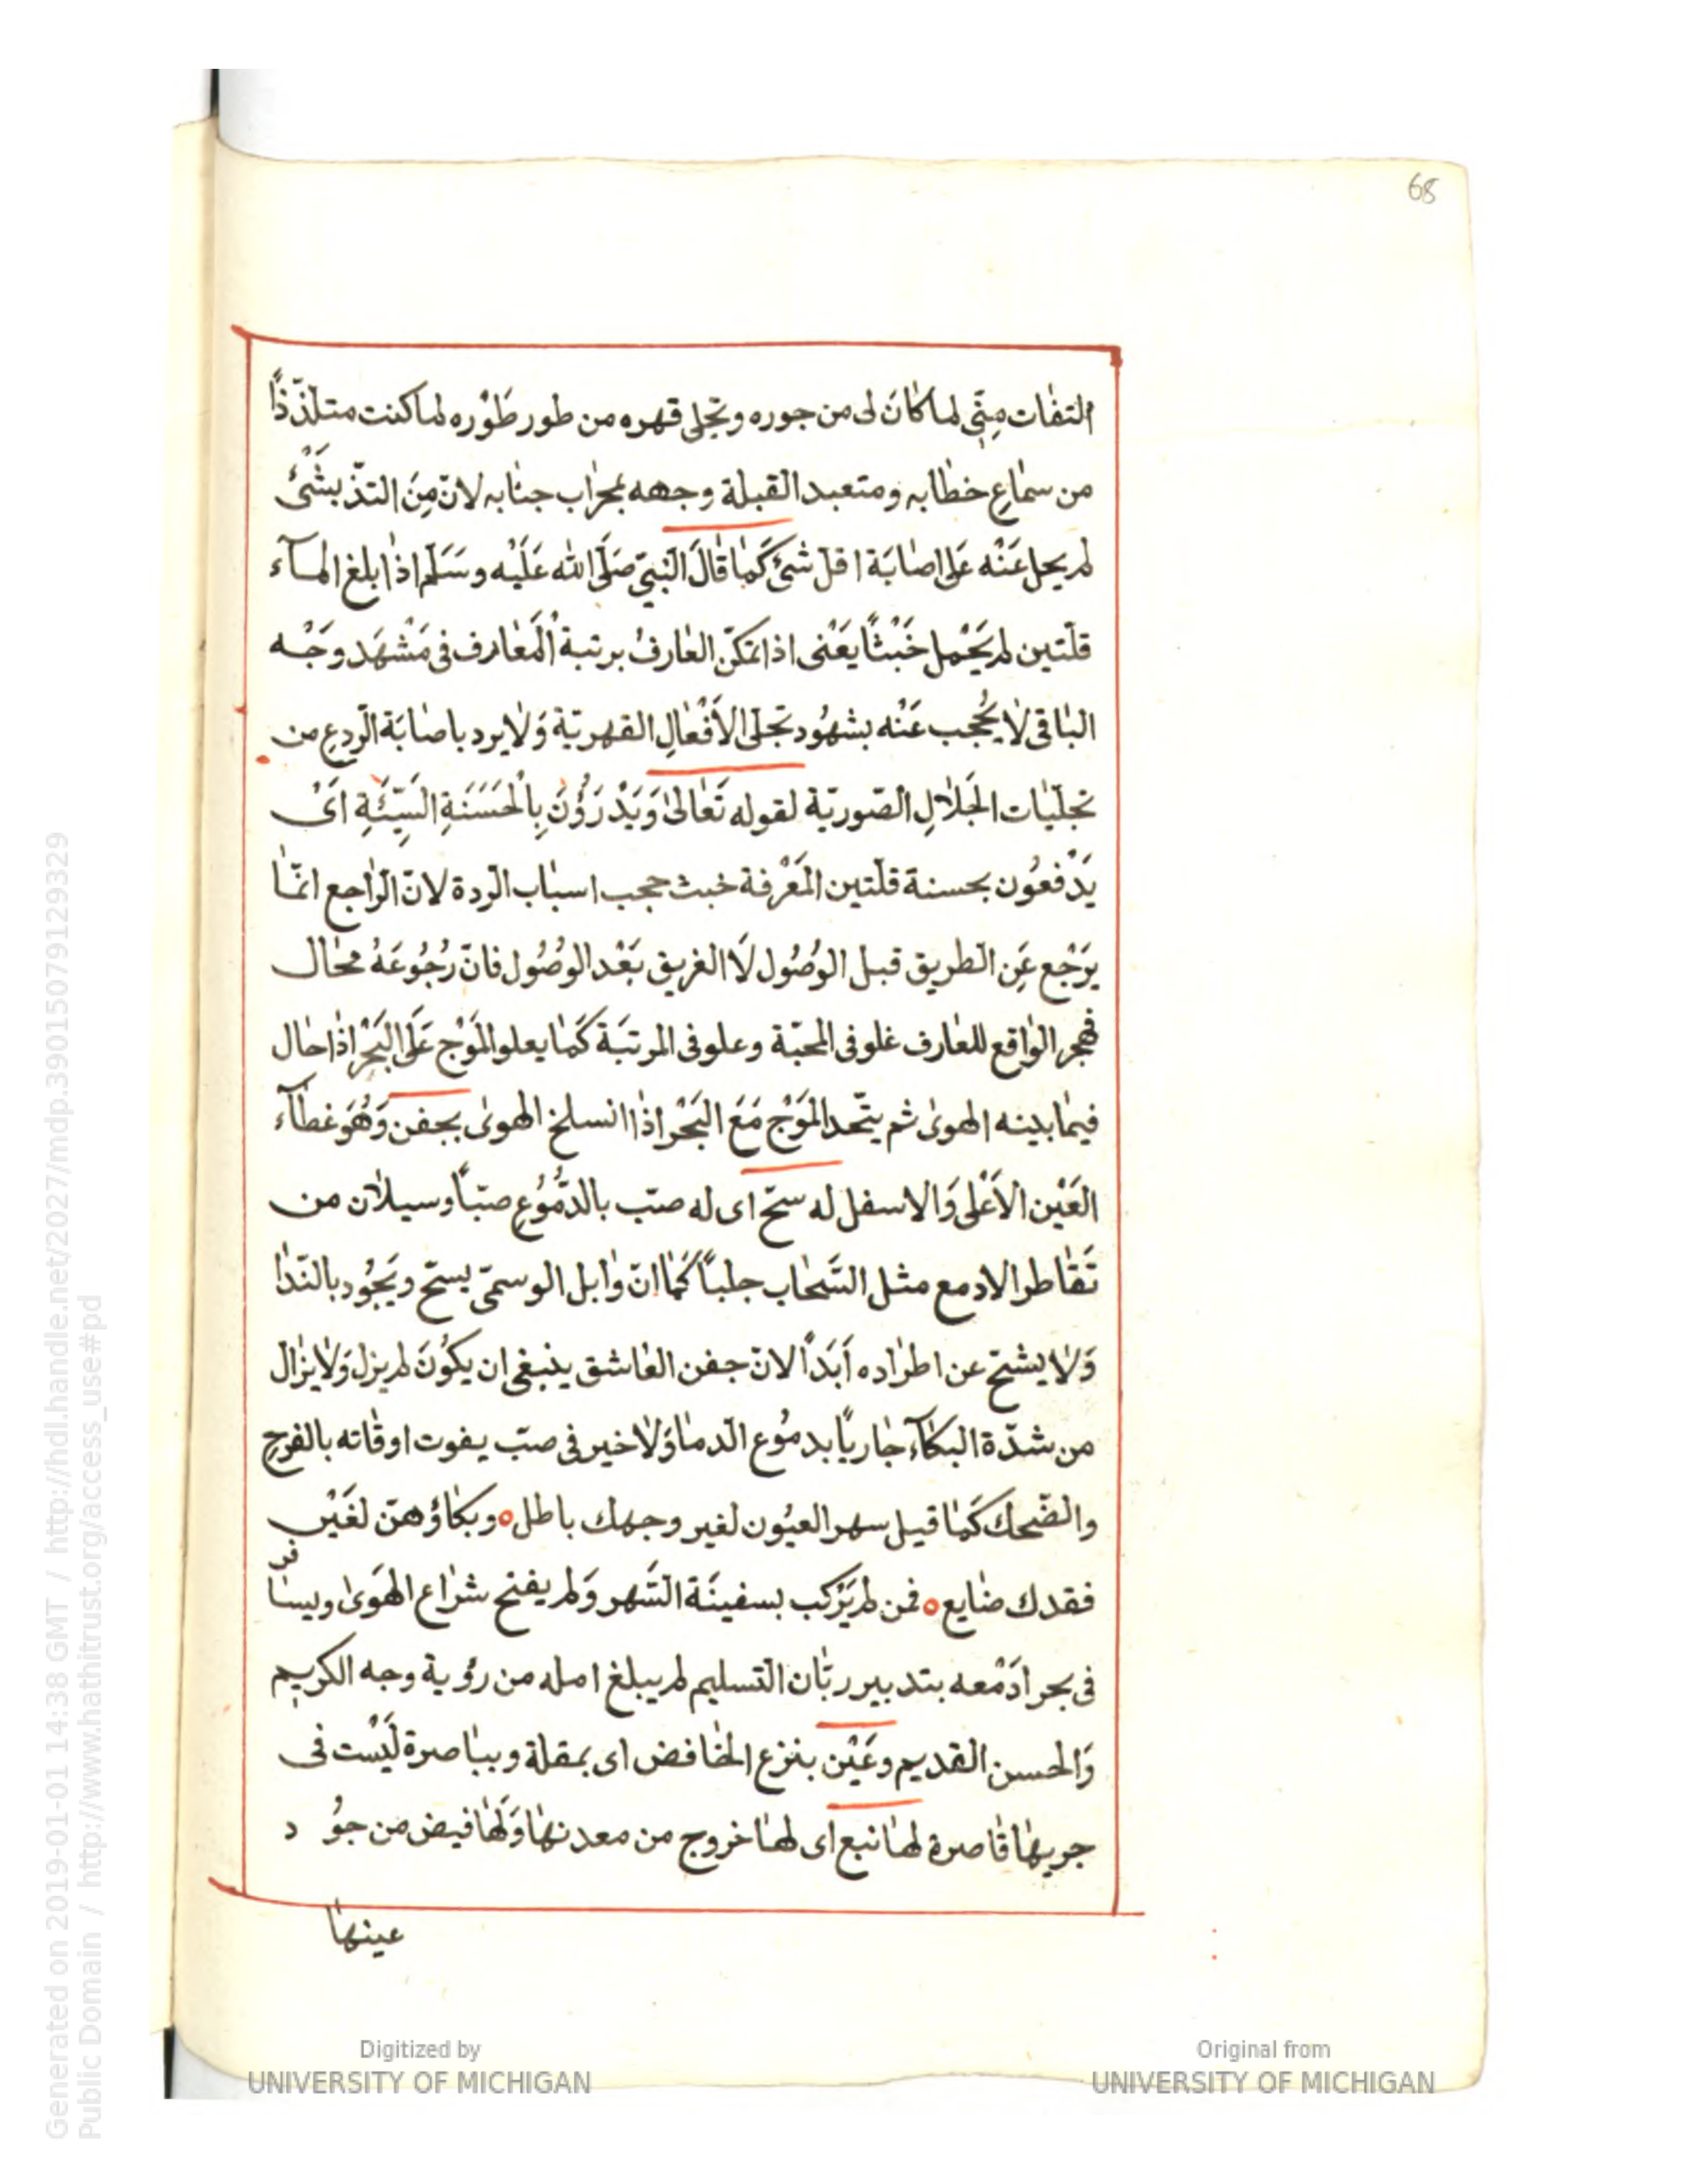 68
التفات مِنّي لما كانَ لى من جوره وتجلى قهره من طور طَوْره لما كنت متلذّذاً
من سماعِ خطابه ومتعبد القبلة وجهه بمحراب جنابه لانّ مِنَ التذّ بشَىْئ
لم يحل عَنْه عَلى اصابَة اقلّ شئ كَما قالَ النّبيّ صَلَّى الله عَلَيْه وسَلّم اذا بلغ المآء
قلّتين لم يَحْمِل خَبْثاً يَعْنى اذا تمكّن العارفُ برتبة المَعارف فى مَشْهَد وَجْه
الباقى لا يُحْجب عَنْه بشهُود تجلّى الاَفْعالِ القهريّة وَلا يرد باصابَة الرّدعِ من
تجلّيات الجَلالِ الصّوريّة لقوله تَعالىٰ وَيَدْرَؤُنَ بِالْحَسَنَةِ السَّيِّئَةِ اَىْ
يَدْفعُون بحسنة قلّتين المَعْرفة خبث حجب اسباب الرّدة لانّ الرّاجع انّما
يَرْجع عَن الطريق قبل الوُصُول لَا الغريق بَعْد الوصُول فانّ رُجُوعَهُ محال
فهجر الواقع للعارف غلو فى المحبّة وعلو فى المرتبَة كَما يعلو المَوْج عَلَى البَحْر اذا حال
فيما بينه الهوىٰ ثم يتّحد المَوْج مَعَ البَحْر اذا انسلخ الهوىٰ بجفن وَهُوَ غطآء
العَيْن الاَعْلى وَالاسفل له سحّ اى له صبّ بالدّمُوعِ صبّاً وسيلان من
تَقاطر الادمع مثل السَّحاب جلباً كَما انّ وابل الوسمىّ يسحّ ويَجُود بالنّدا
وَلا يشحّ عن اطراده اَبَداً لانّ جفن العاشق ينبغى ان يكوُنَ لم يزل وَلا يزال
من شدّة البكآء جارياً بدموُع الدّما وَلا خير فى صبّ يفوت اوقاته بالفرحِ
والضّحك كَما قيل سهر العيُون لغير وجهك باطل ٥ وبكاؤهنّ لغَيْر
فقدك ضايع ٥ فمن لم يَرْكب بسفينَة السَّهر وَلم يفتح شراع الهَوىٰ ويسافر
فى بحر ادَمْعه بتدبير ربّان التّسليم لم يبلغ امله من رؤية وجه الكريم
وَالحسن القديم وعَيْن بنزع الخافض اى بمقلة وبباصرة لَيْست فى
جريها قاصرة لها نبع اى لها خروج من معدنها وَلَها فيض من جوُد
عينها
Digitized by
UNIVERSITY OF MICHIGAN
Original from
UNIVERSITY OF MICHIGAN
Generated on 2019-01-01 14:38 GMT / http://hdl.handle.net/2027/mdp.39015079129329
Public Domain / http://www.hathitrust.org/access_use#pd